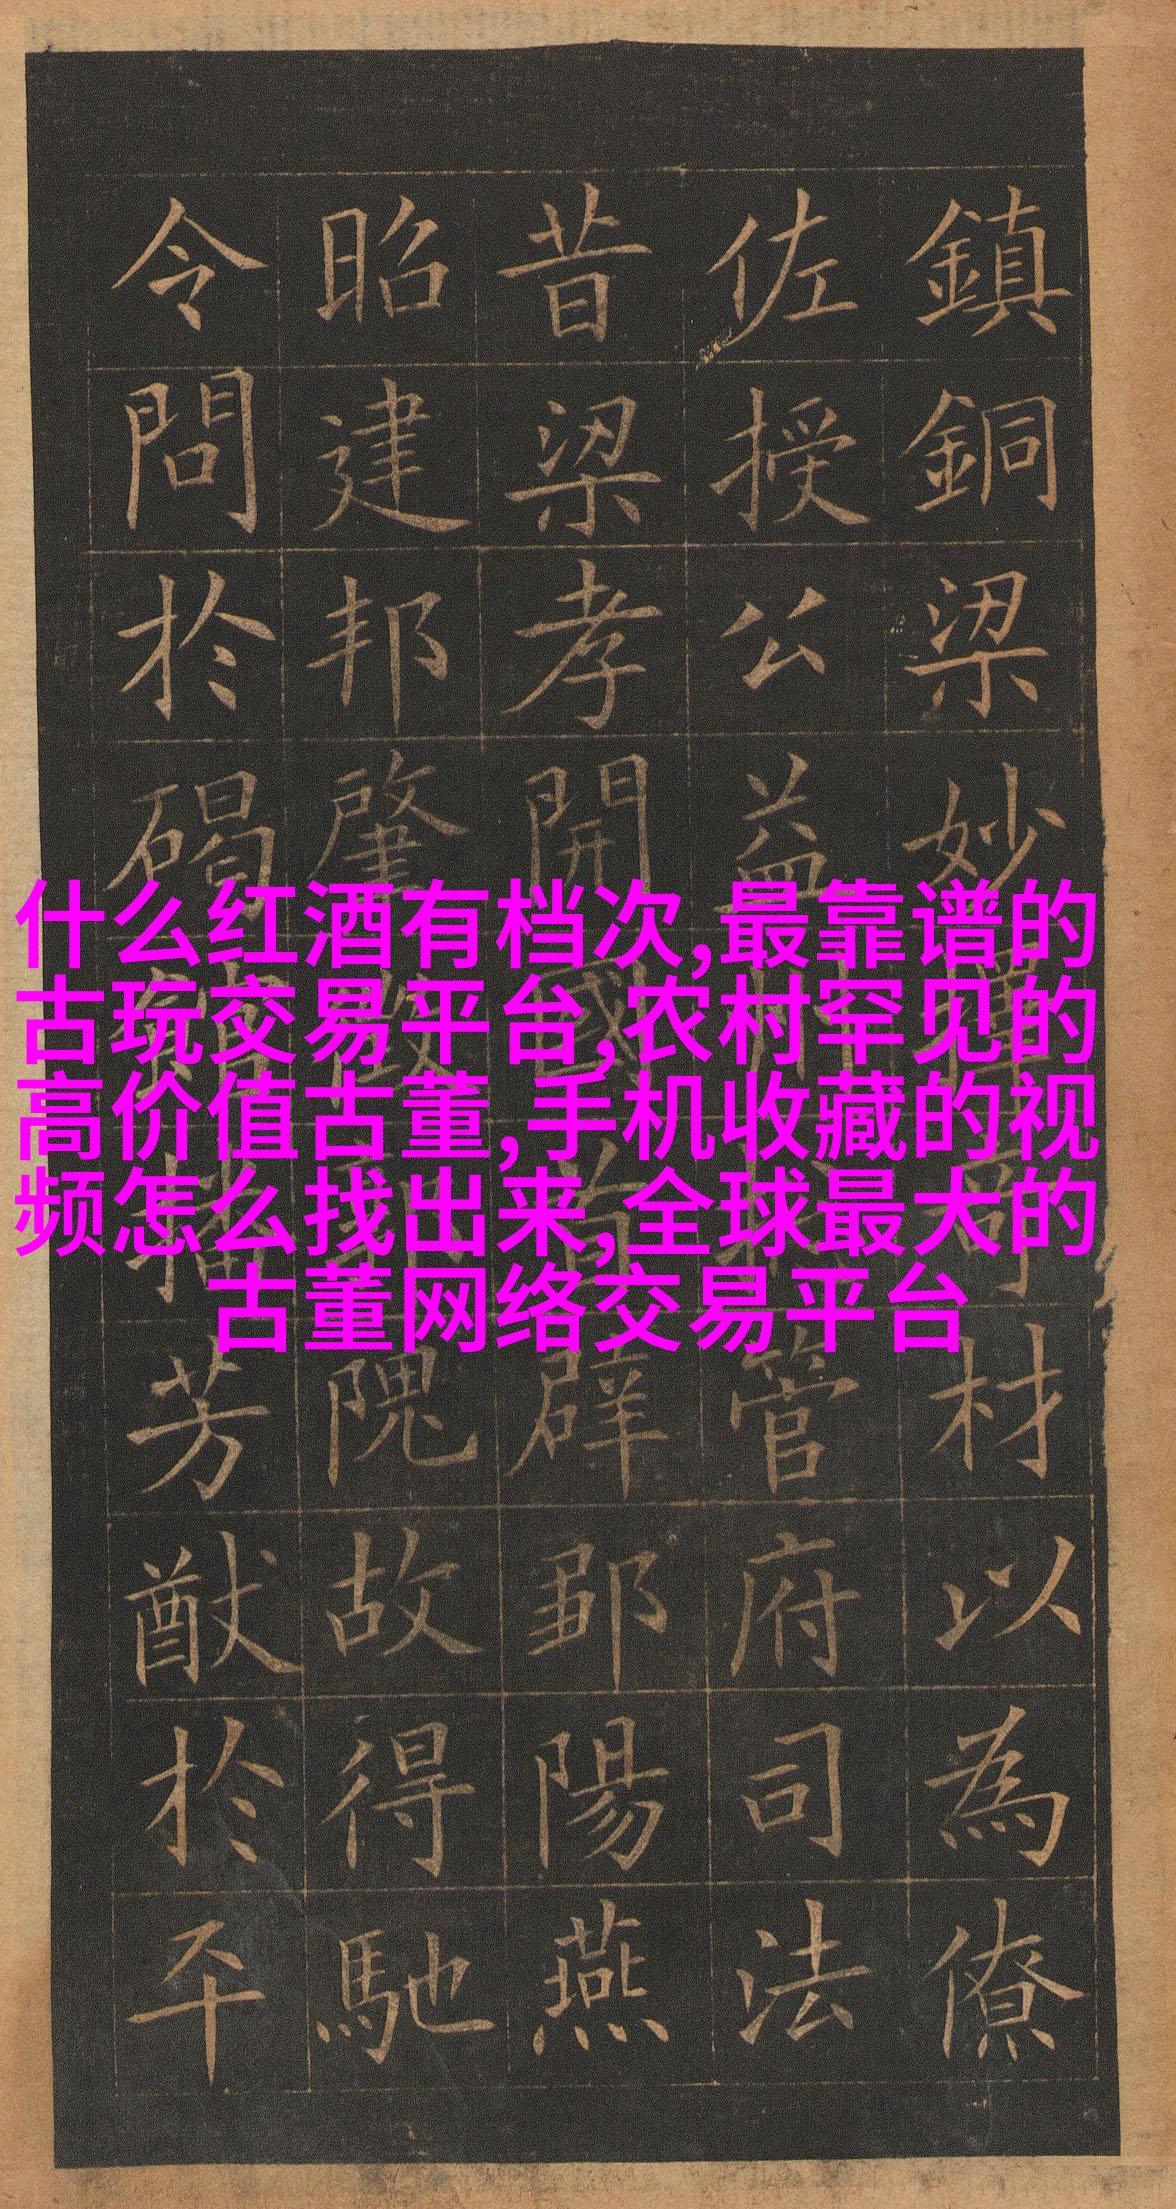 鎮銅梁妙材以為僚
佐授公益州管府司法
昔梁孝開國首辟鄒陽燕
昭建邦肇隗故得馳
令問於碣館播芳猷於平
什么红酒有档次,最靠谱的
古玩交易平台,农村罕见的
高价值古董,手机收藏的视
频怎么找出来,全球最大的
古董网络交易平台